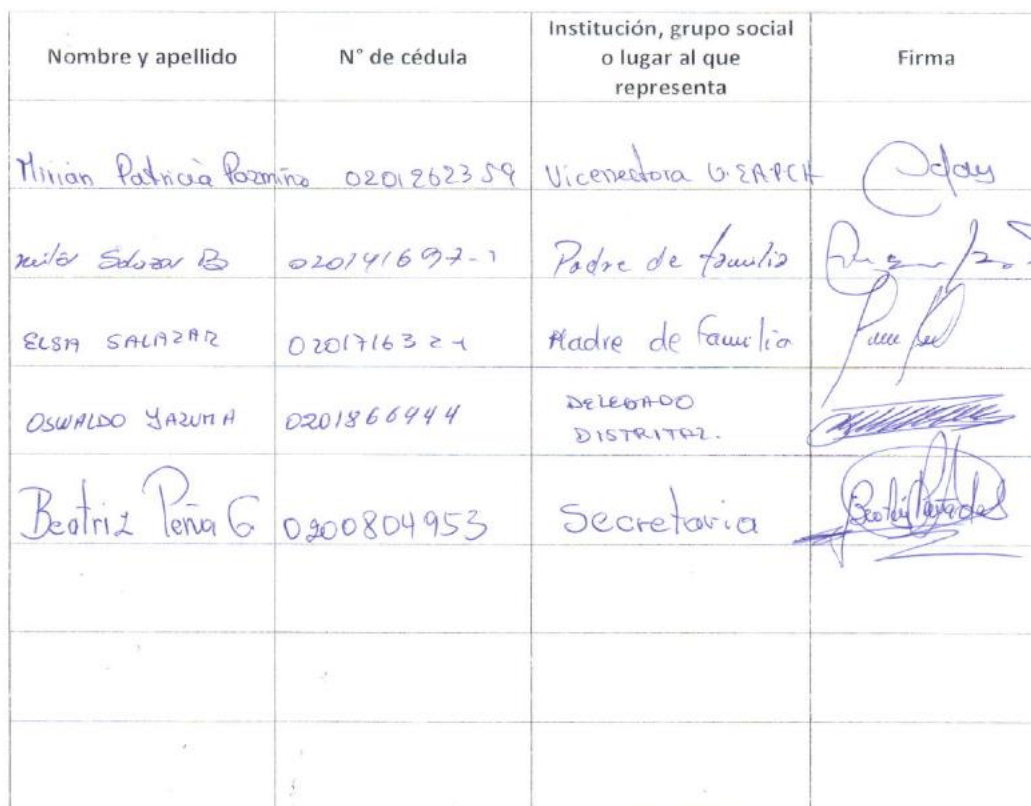 Nombre y apellido N° de cédula Institución, grupo social o lugar al que representa Firma
Mirian Patricia Pazmiño 0201262359 Vicerrectora U.EAPCH
Salazar B 020141697-1 Padre de familia
ELSA SALAZAR 020171632-1 Madre de familia
OSWALDO YAZUMA 0201866944 DELEGADO DISTRITAL.
Beatriz Peña G 0200804953 Secretaria